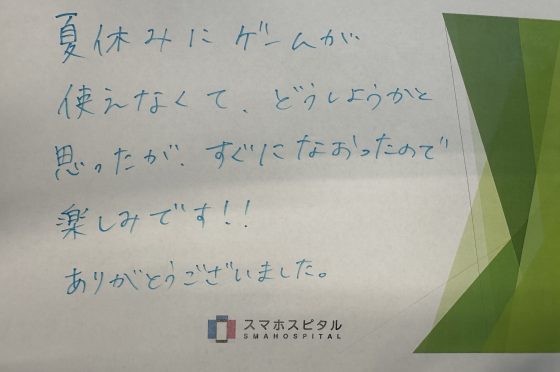 夏休みにゲームが
使えなくて、どうしようかと
思ったが、すぐになおったので
楽しみです!!
ありがとうございました。
スマホスピタル
SMAHOSPITAL